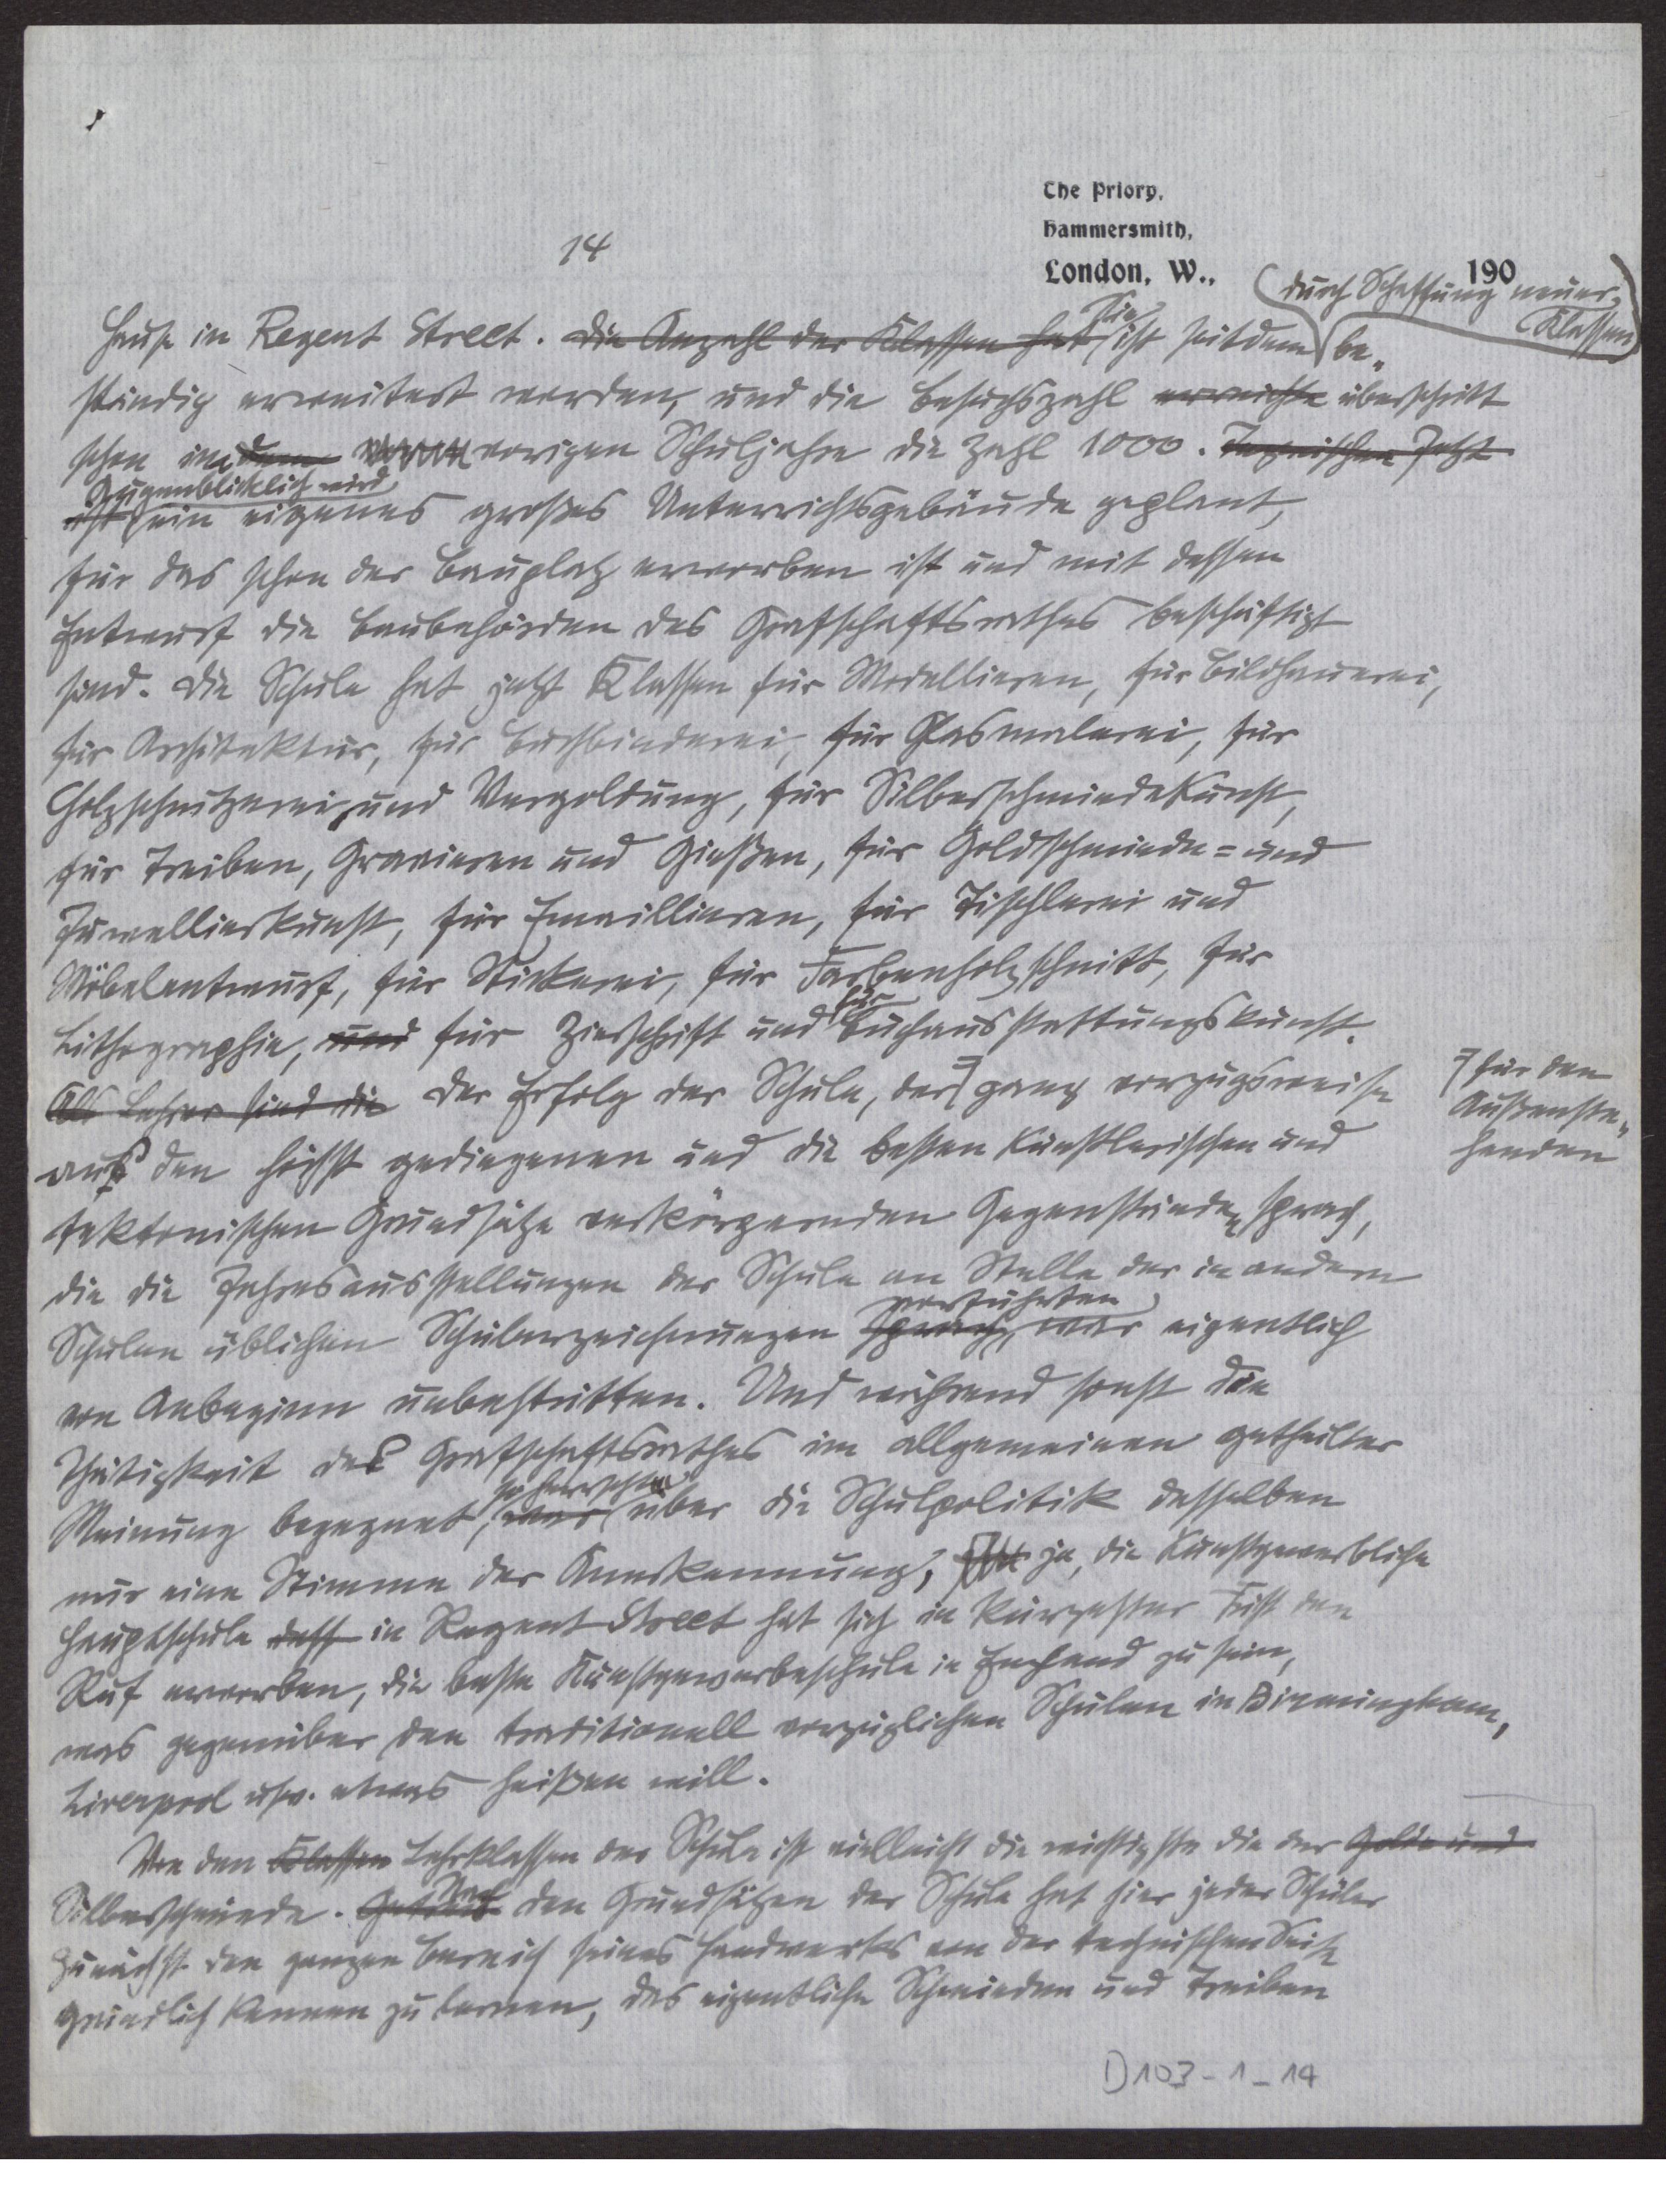 The Priory,
Hammersmith,
London, W., 190
14
durch Schaffung neuer
Klassen
Hause in Regent Street. Die Anzahl der Klassen hat Sie ist seitdem be-
ständig erweitert worden, und die Besuchszahl erreichte überschritt
schon im dem vorigen Schuljahre die Zahl 1000. Inzwischen Jetzt
Augenblicklich wird
ist ein eigenes großes Unterrichtsgebäude geplant,
für das schon der Bauplatz erworben ist und mit dessen
Entwurf die Baubehörden des Grafschaftsrathes beschäftigt
sind. Die Schule hat jetzt Klassen für Modellieren, für Bildhauerei,
für Architektur, für Buchbinderei, für Glasmalerei, für
Holzschnitzerei und Vergoldung, für Silberschmiedekunst,
für Treiben, Gravieren und Gießen, für Goldschmiede= und
Juwelierkunst, für Emaillieren, für Tischlerei und
Möbelentwurf, für Stickerei, für Farbenholzschnitt, für
Lithographie, und für Zierschrift und für Buchausstattungskunst.
Als Lehrer sind die Der Erfolg der Schule, der ganz vorzugsweise
für den
Außenste-
henden
aus den höchst gediegenen und die besten künstlerischen und
tektonischen Grundsätze verkörpernden Gegenständen sprach,
die die Jahresausstellungen der Schule an Stelle der in andern
Schulen üblichen Schülerzeichnungen sprach, vorführten war eigentlich
von Anbeginn unbestritten. Und während sonst die
Thätigkeit des Grafschaftsrathes im allgemeinen getheilter
Meinung begegnet, war so herrscht über die Schulpolitik desselben
nur eine Stimme der Anerkennung, ja, die kunstgewerbliche
Hauptschule dess in Regent Street hat sich in kürzester Frist den
Ruf erworben, die beste Kunstgewerbeschule in England zu sein,
was gegenüber den traditionell vorzüglichen Schulen in Birmingham,
Liverpool usw. etwas heißen will.
Von den Klassen Lehrklassen der Schule ist vielleicht die wichtigste die der Gold- und
Silberschmiede. Nach den Grundsätzen der Schule hat hier jeder Schüler
zunächst den ganzen Bereich seines Handwerks von der technischen Seite
gründlich kennen zu lernen, das eigentliche Schmieden und Treiben
D103-1-14